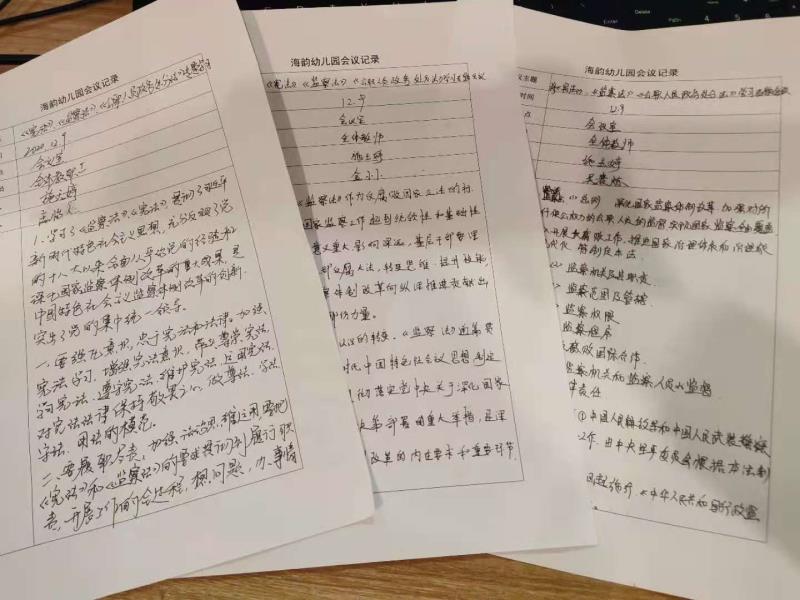 海韵幼儿园会议记录
《宪法》、《监察法》、《公职人员政务处分法》
2020.12.9
会议室
全体教职工
施玉婷
1.学习了《监察法》、《宪法》
新时代中国特色社会主义思想,充分反映了党
的十八大以来全面从严治党的经验和
深化国家监察体制改革的重大成果,是
中国特色社会主义监察体制改革的创新
党的集中统一领导。
一、要强化意识,忠于宪法和法律。加强
宪法学习,增强宪法意识,带头尊崇宪法、
学习宪法、遵守宪法、维护宪法、运用宪法,
对宪法法律保持敬畏之心,做尊法、学法、
守法、用法的模范。
二、要履职尽责,
《宪法》和《监察法》的 履行职
责,开展工作的全过程,想问题,办事情
海韵幼儿园会议记录
《宪法》《监察法》《公职人员政务处分法》学习
12.9
会议室
全体教师
施玉婷
金小小
《监察法》作为反腐败国家立法
国家监察工作起到统领性和基础性
意义重大,影响深远,
部反腐大法,转变思维,提升
体制改革向纵深推进贡献出
份力量。
的转变。《监察法》通篇贯
时代中国特色社会主义思想
彻落实党中央关于深化国家
决策部署的重大举措,是深
改革的内在要求和重要环节
海韵幼儿园会议记录
议主题
《监察法》、《公职人员政务处分法》学习
时间
12.9
点
会议室
全体教师
施玉婷
总则 深化国家监察体制改革,加强对所
行使公权力的公职人员的监督,实现国家监察全面覆盖
开展反腐败工作,推进国家治理体系和治理能
现代化,制定本法。
监察机关及其职责
监察范围及管辖
监察权限
监察程序
反腐败国际合作
监察机关和监察人员的监督
责任
①中国人民解放军和中国人民武装警察
工作,由中央军事委员会根据本法制
日起施行,《中华人民共和国行政监